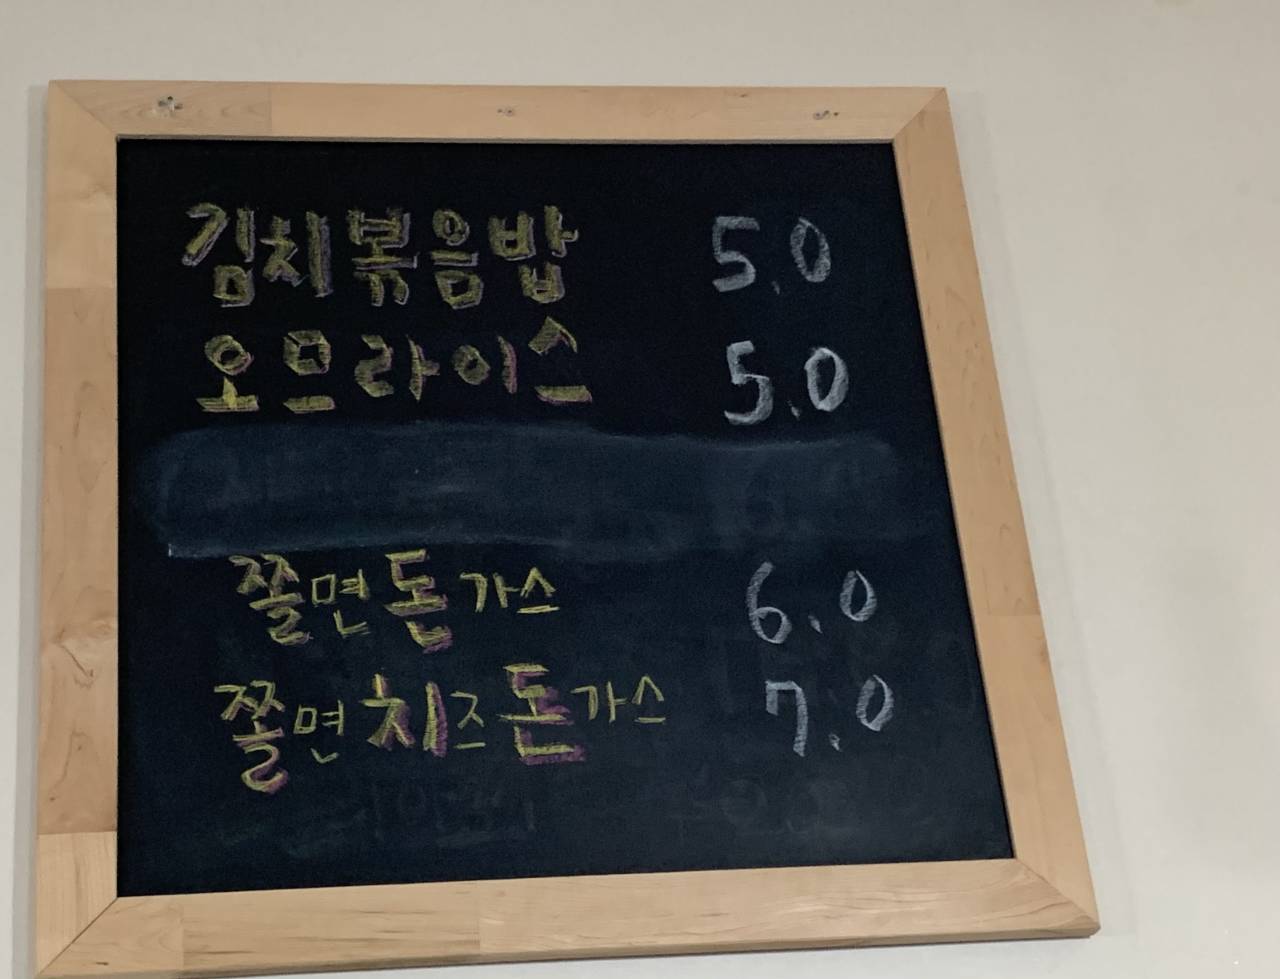 김치볶음밥 5.0
오므라이스 5.0
쫄면돈가스 6.0
쫄면치즈돈가스 7.0